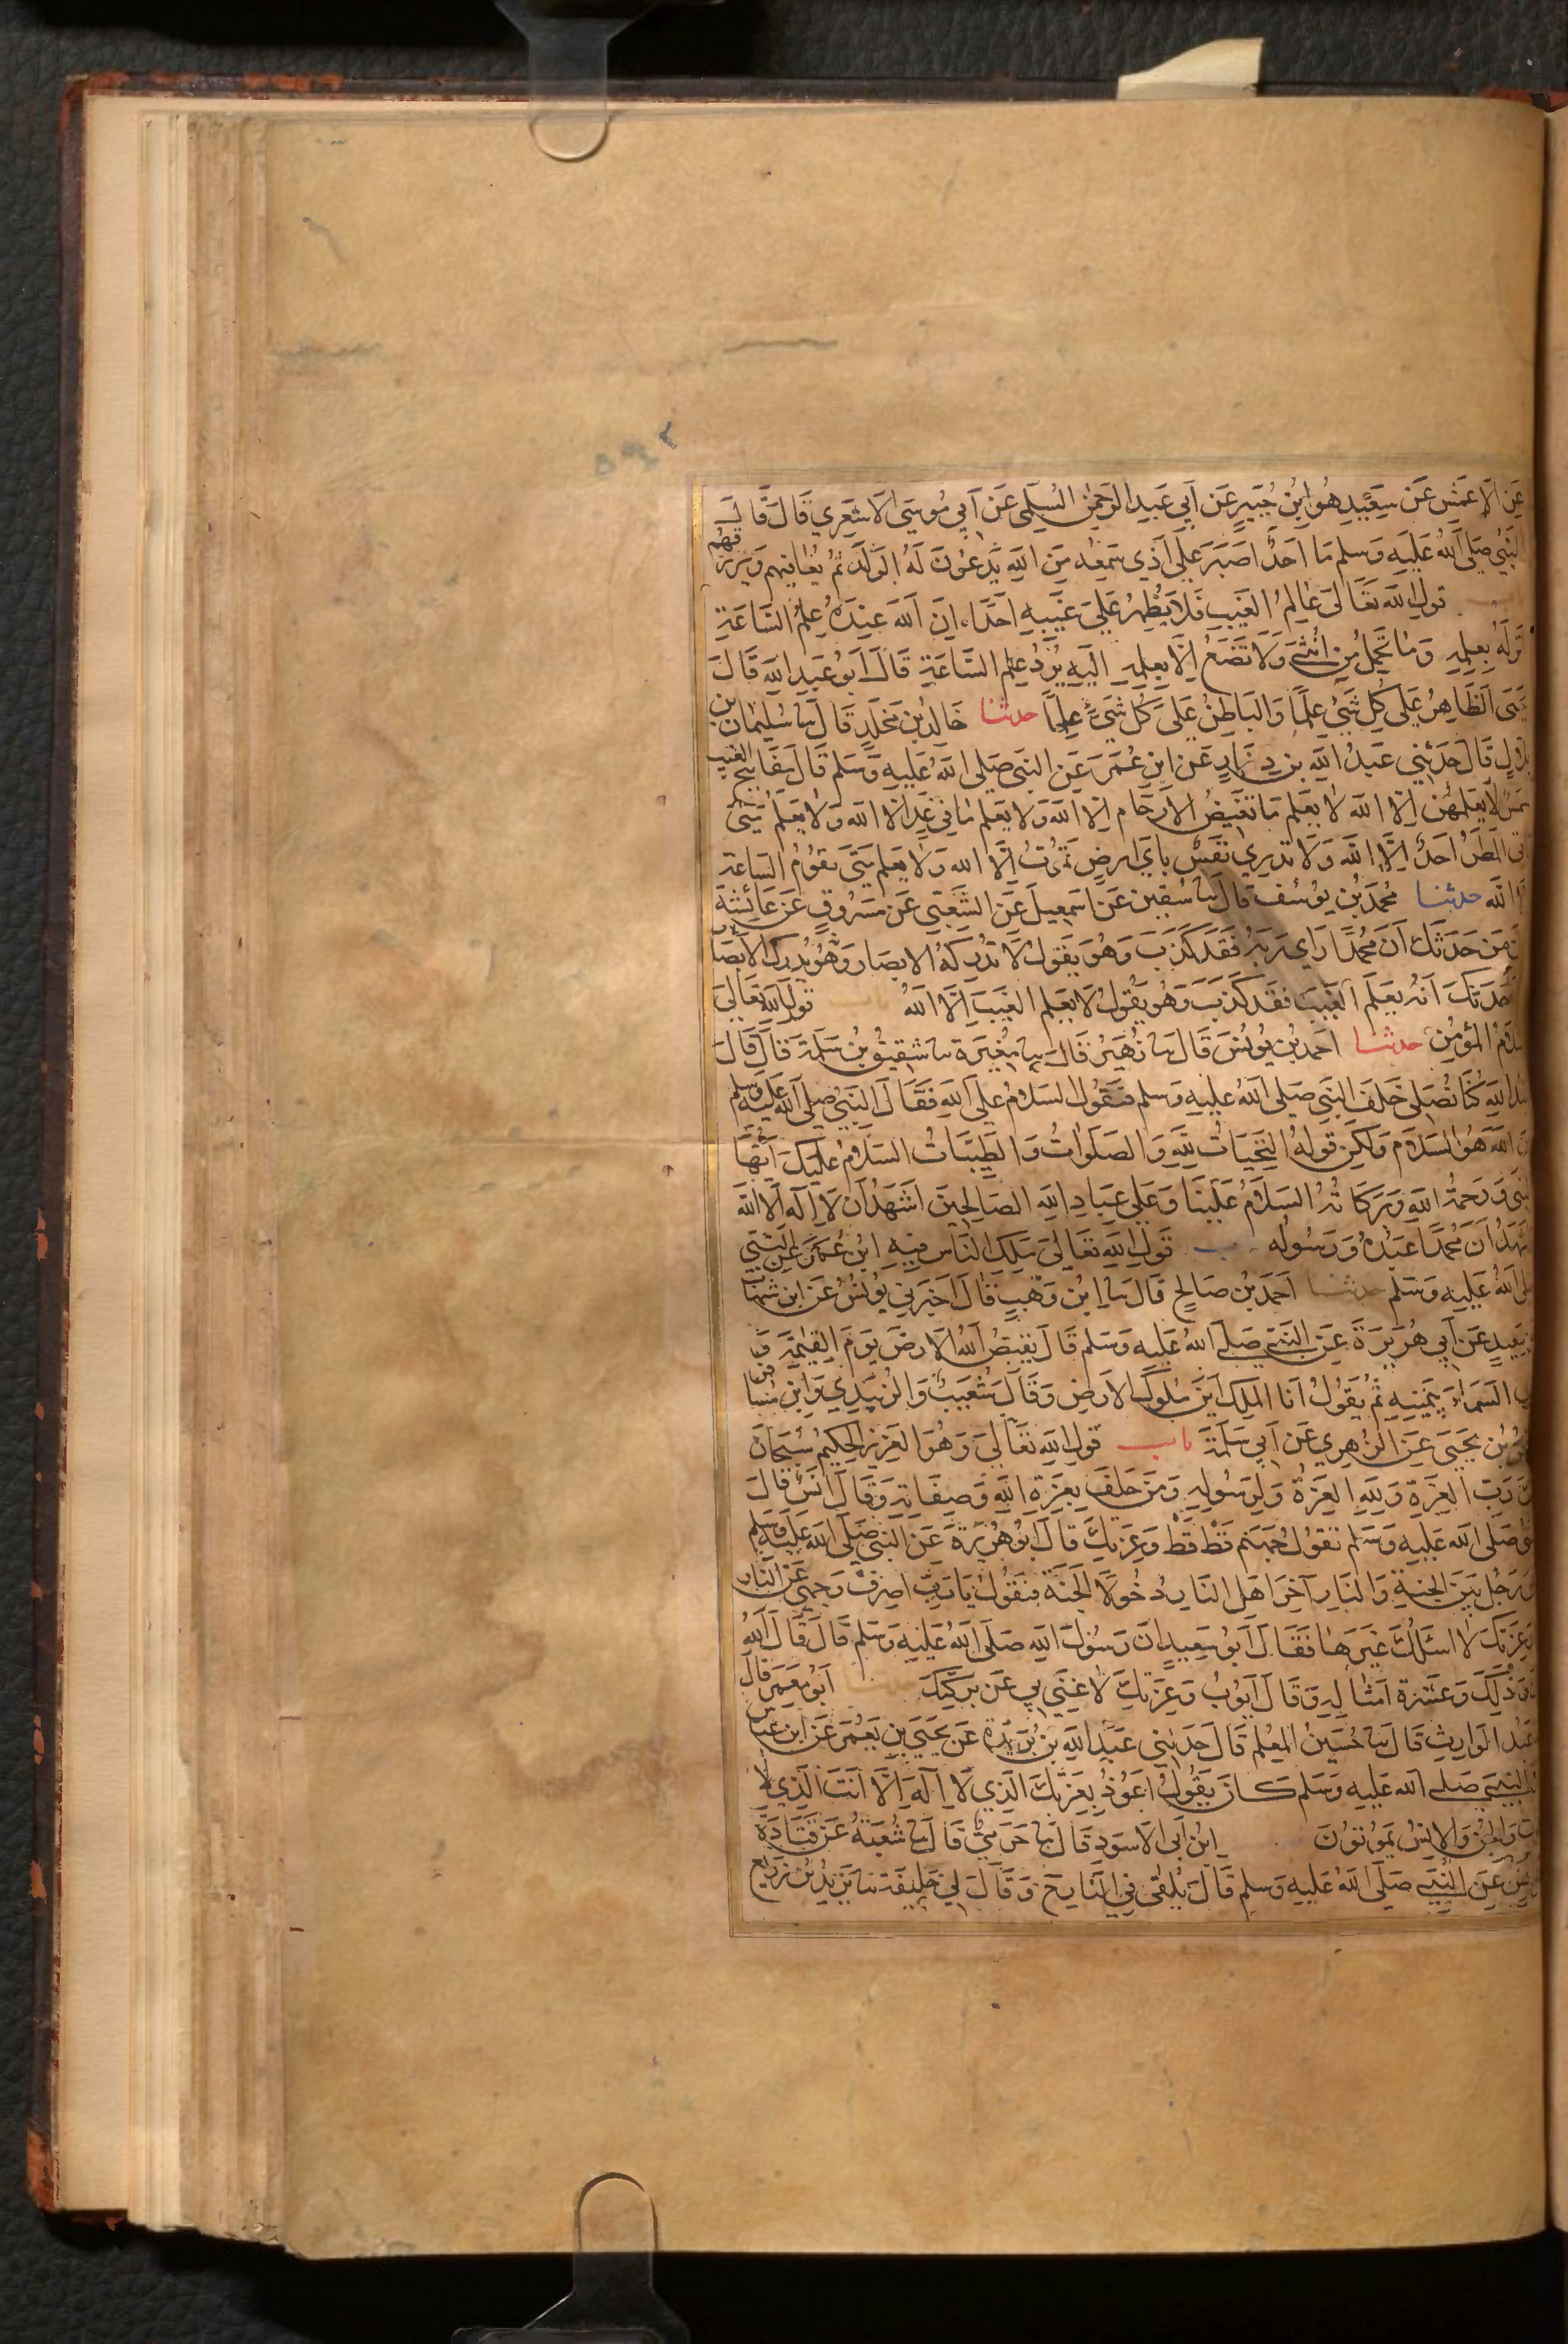 عَنِ الْاَعْمَشِ عَنْ سَعِيْدٍ هُوَ ابْنُ جُبَيْرٍ عَنْ اَبِي عَبْدِ الرَّحْمٰنِ السُّلَمِي عَنْ اَبِي مُوسَى الْاَشْعَرِي قَالَ قَالَ
النَّبِيُّ صَلَى اللهُ عَلَيْهِ وَسَلَم مَا اَحَدٌ اَصْبَرَ عَلَى اَذًى سَمِعَهُ مِنَ اللهِ يَدَّعُوْنَ لَهُ الْوَلَدَ ثُمَّ يُعَافِيْهِم وَيَرْزُقُهُم
قول الله تَعَالَى عَالِمُ الْغَيْبِ فَلَا يُظْهِرُ عَلَى غَيْبِهِ اَحَدًا، اِنَّ اللهَ عِنْدَهُ عِلْمُ السَّاعَةِ
نزَلَهُ بِعِلْمِهِ وَمَا تَحْمِلُ مِنْ اُنْثَى وَلَا تَضَعُ اِلَّا بِعِلْمِهِ اِلَيْهِ يُرَدُّ عِلْمُ السَّاعَةِ قَالَ اَبُو عَبْدِ اللهِ قَالَ
يَحْيَى الظَّاهِرُ عَلَى كُلِّ شَيْءٍ عِلْمًا وَالْبَاطِنُ عَلَى كُلِّ شَيْءٍ عِلْمًا حدثنا خَالِدُ بْنُ مَخْلَدٍ قَالَ ثنا سُلَيْمَانُ بن
بلَالٍ قَالَ حَدَّثَنِي عَبْدُ اللهِ بن دِيْنَارٍ عَنِ ابْنِ عُمَرَ عَنِ النَّبِي صَلَى اللهُ عَلَيْهِ وَسَلَم قَالَ مَفَاتِيْحُ الغيب
خمسٌ لَا يَعْلَمُهُنَّ اِلَّا اللهُ لَا يَعْلَمُ مَا تَغِيْضُ الْاَرْحَام اِلَّا اللهُ وَلَا يَعْلَمُ مَا فِي غَدٍ اِلَّا اللهُ وَلَا يَعْلَمُ مَتَى
ياتي الْمَطَرُ اَحَدٌ اِلَّا اللهُ وَلَا تَدْرِي نَفْسٌ بِاَيِّ اَرْضٍ تَمُوْتُ اِلَّا اللهُ وَلَا يَعْلَمُ مَتَى تَقُوْمُ السَّاعَة
اِلَّا اللهُ حدثنا مُحَمَّدُ بْنُ يُوْسُفَ قَالَ ثنا سُفْيٰنُ عَنْ اِسْمٰعِيلَ عَنِ الشَّعْبِي عَنْ مَسْرُوْقٍ عَنْ عَائِشَةَ
مَنْ حَدَّثَكَ اَنَّ مُحَمَّدًا رَاى رَبَّهُ فَقَدْ كَذَبَ وَهُوَ يَقُوْلُ لَا تُدْرِكُهُ الْاَبْصَارُ وَهُوَ يُدْرِكُ الْاَبْصَار
حَدَّثَكَ اَنَّهُ يَعْلَمُ الْغَيْبَ فَقَدْ كَذَبَ وَهُوَ يَقُوْلُ لَا يَعْلَمُ الْغَيْبَ اِلَّا اللهُ قول الله تَعَالَى
السلَامُ الْمُؤْمِن حدثنا اَحْمَدُ بْنُ يُوْنُسَ قَالَ ثنا زُهَيْرٌ قَالَ ثنا مُغِيْرَة ثنا شَقِيْقُ بْنُ سَلَمَةَ قَالَ قَالَ
عبدُ اللهِ كُنَّا نُصَلِّي خَلْفَ النَّبِي صَلَى اللهُ عَلَيْهِ وَسَلَم فَنَقُوْلُ السَّلَامُ عَلَى اللهِ فَقَالَ النَّبِيُّ صَلَى اللهُ عَلَيْهِ وَسَلَم
اِنَّ اللهَ هُوَ السَّلَام وَلٰكِن قُولُوا التَّحِيَّاتُ لِلّٰهِ وَالصَّلَوَاتُ وَالطَّيِّبَاتُ السَّلَامُ عَلَيْكَ اَيُّهَا
النَّبِيُّ وَرَحْمَةُ اللهِ وَبَرَكَاتُهُ السَّلَامُ عَلَيْنَا وَعَلَى عِبَادِ اللهِ الصَّالِحِيْنَ اَشْهَدُ اَنْ لَا اِلٰهَ اِلَّا اللهُ
اَشْهَدُ اَنَّ مُحَمَّدًا عَبْدُهُ وَرَسُولُه باب قَوْلِ اللهِ تَعَالَى مَلِكِ النَّاسِ فِيْهِ ابْنُ عُمَرَ عَنِ النَّبِي
صَلَى اللهُ عَلَيْهِ وَسَلَم حدثنا اَحْمَدُ بْنُ صَالِحٍ قَالَ ثنا ابْنُ وَهْبٍ قَالَ اَخْبَرَنِي يُوْنُسُ عَنِ ابْنِ شِهَابٍ
سَعِيْدٍ عَنْ اَبِي هُرَيْرَةَ عَنِ النَّبِي صَلَى اللهُ عَلَيْهِ وَسَلَم قَالَ يَقْبِضُ اللهُ الْاَرْضَ يَوْمَ الْقِيٰمَةِ وَ
يطوي السَّمَاءَ بِيَمِيْنِهِ ثُمَّ يَقُوْلُ اَنَا الْمَلِكُ اَيْنَ مُلُوْكُ الْاَرْضِ وَقَالَ شُعَيْبٌ وَالزُّبَيْدِي وَابْنُ مُسَافِر
اِسحٰقُ بْنُ يَحْيَى عَنِ الزُّهْرِي عَنْ اَبِي سَلَمَةَ باب قَوْلِ اللهِ تَعَالَى وَهُوَ الْعَزِيْزُ الْحَكِيْمُ سُبْحَانَ
رَبِّكَ رَبِّ الْعِزَّةِ وَلِلّٰهِ الْعِزَّةُ وَلِرَسُوْلِهِ وَمَنْ حَلَفَ بِعِزَّةِ اللهِ وَصِفَاتِهِ وَقَالَ اَنَسٌ قَالَ
النَّبِيُّ صَلَى اللهُ عَلَيْهِ وَسَلَم تَقُوْلُ جَهَنَّمُ قَطْ قَطْ وَعِزَّتِكَ قَالَ اَبُو هُرَيْرَةَ عَنِ النَّبِي صَلَّى اللهُ عَلَيْهِ وَسَلَم
رَجُلٌ بَيْنَ الْجَنَّةِ وَالنَّارِ آخِرُ اَهْلِ النَّارِ دُخُولًا الْجَنَّةَ فَيَقُوْلُ يَا رَبِّ اصْرِفْ وَجْهِي عَنِ النَّارِ
وَعِزَّتِكَ لَا اَسْئَلُكَ غَيْرَهَا فَقَالَ اَبُو سَعِيْدٍ اِنَّ رَسُوْلَ اللهِ صَلَى اللهُ عَلَيْهِ وَسَلَم قَالَ قَالَ اللهُ
لَكَ ذٰلِكَ وَعَشَرَةُ اَمْثَالِهِ وَقَالَ اَيُّوْبُ وَعِزَّتِكَ لَا غِنَى بِي عَنْ بَرَكَتِكَ اَبُو مَعْمَر قَالَ
عَبْدُ الْوَارِثِ قَالَ ثنا حُسَيْنُ الْمُعَلِّم قَالَ حَدَّثَنِي عَبْدُ اللهِ بْنُ بُرَيْدَةَ عَنْ يَحْيَى بْنِ يَعْمُرَ عَنِ ابْنِ عَبَّاس
النَّبِي صَلَى الله عَلَيْهِ وَسَلَم كَانَ يَقُوْلُ اَعُوْذُ بِعِزَّتِكَ الَّذِي لَا اِلٰهَ اِلَّا اَنْتَ الَّذِي لَا
يموت وَالْجِنُّ وَالْاِنْسُ يَمُوْتُوْنَ ابْنُ اَبِي الْاَسْوَدِ قَالَ ثنا حَرَمِيٌّ قَالَ ثنا شُعْبَةُ عَنْ قَتَادَةَ
اَنَسٍ عَنِ النَّبِي صَلَى اللهُ عَلَيْهِ وَسَلَم قَالَ يُلْقٰى فِي النَّارِ ح وَقَالَ لِي خَلِيْفَة ثنا يَزِيْدُ بْنُ زُرَيْع